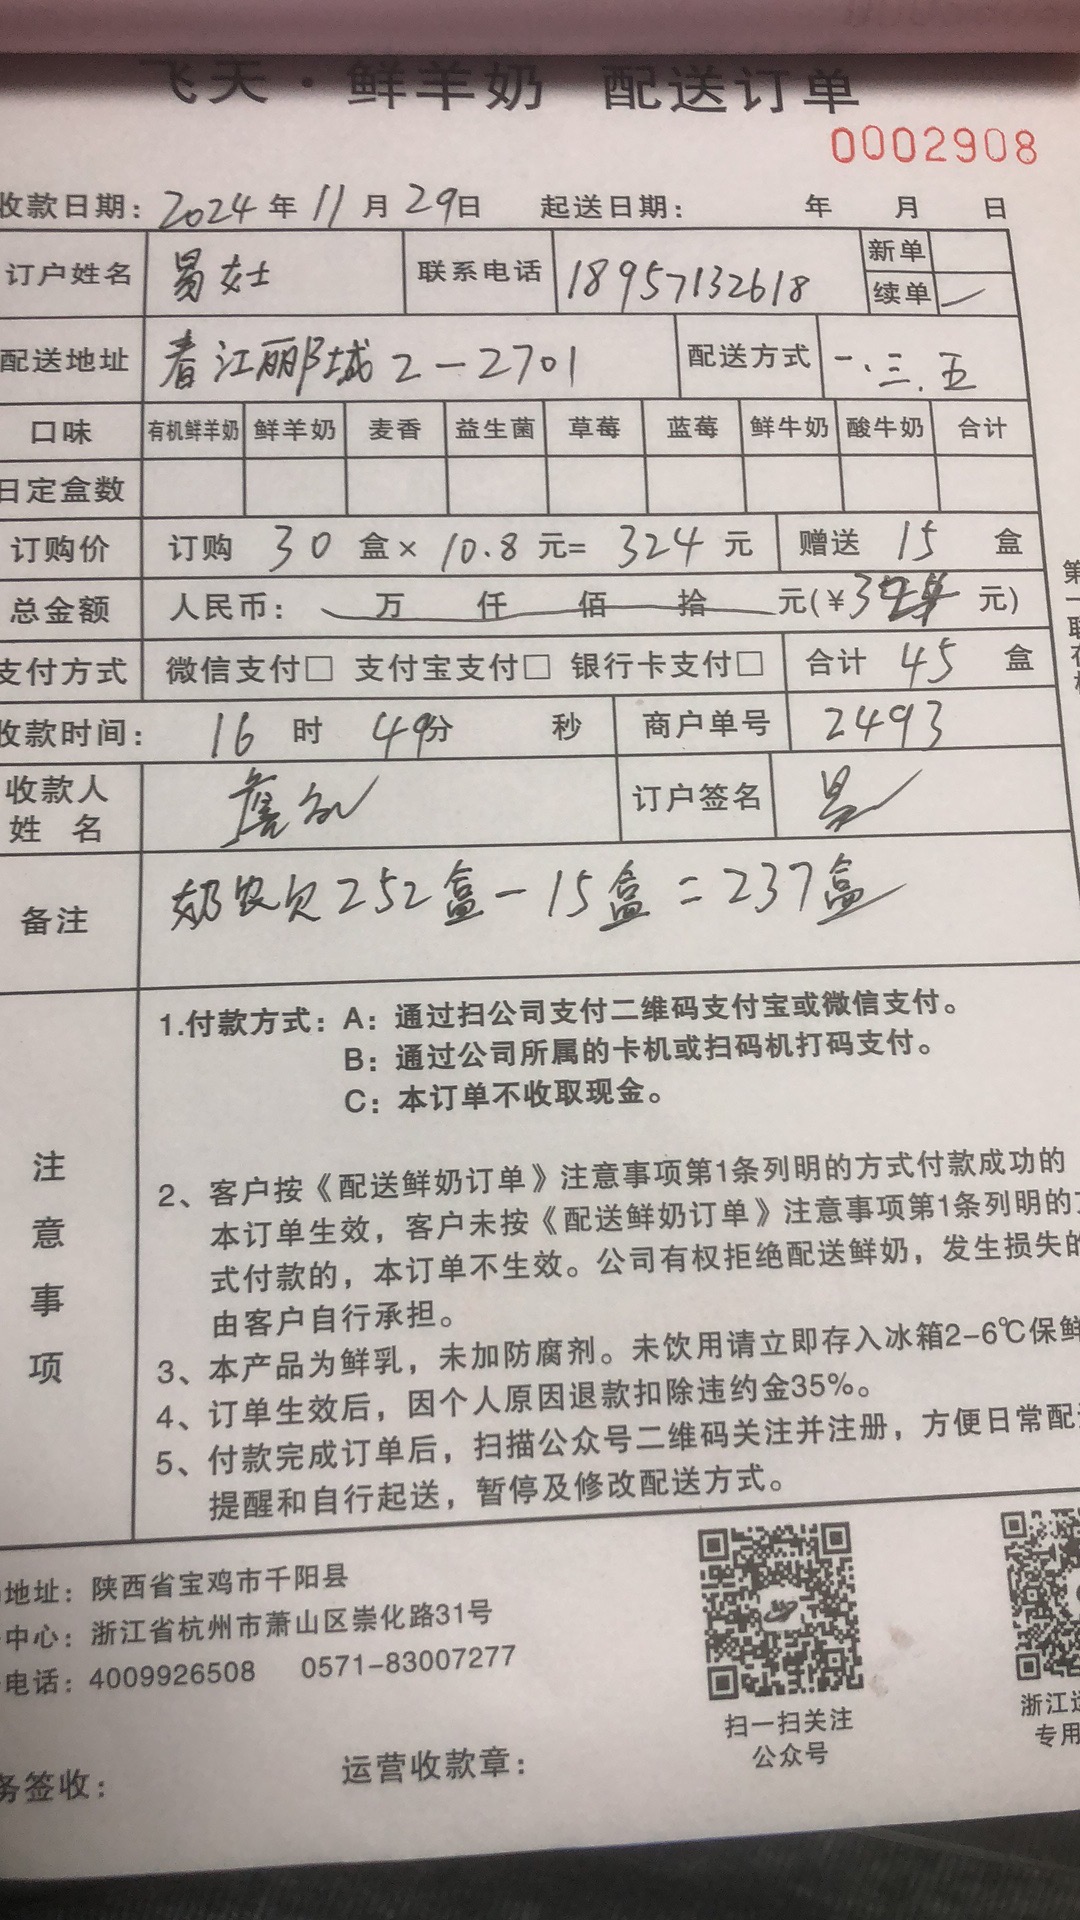 飞天·鲜羊奶 配送订单
0002908
收款日期：2024年11月29日 起送日期： 年 月 日
订户姓名 易女士 联系电话 18957132618 新单
续单 ー
配送地址 春江郦城2-2701 配送方式 一.三.五
口味 有机鲜羊奶 鲜羊奶 麦香 益生菌 草莓 蓝莓 鲜牛奶 酸牛奶 合计
日定盒数
订购价 订购 30 盒× 10.8 元= 324 元 赠送 15 盒
总金额 人民币： 万 仟 佰 拾 元(¥324 元)
支付方式 微信支付□ 支付宝支付□ 银行卡支付□ 合计 45 盒
收款时间： 16 时 49分 秒 商户单号 2493
收款人
姓 名 订户签名 易
备注 奶农欠252盒-15盒=237盒
注意事项
1.付款方式：A：通过扫公司支付二维码支付宝或微信支付。
B：通过公司所属的卡机或扫码机打码支付。
C：本订单不收取现金。
2、客户按《配送鲜奶订单》注意事项第1条列明的方式付款成功的
本订单生效，客户未按《配送鲜奶订单》注意事项第1条列明的方
式付款的，本订单不生效。公司有权拒绝配送鲜奶，发生损失的
由客户自行承担。
3、本产品为鲜乳，未加防腐剂。未饮用请立即存入冰箱2-6℃保鲜
4、订单生效后，因个人原因退款扣除违约金35%。
5、付款完成订单后，扫描公众号二维码关注并注册，方便日常配送
提醒和自行起送，暂停及修改配送方式。
地址：陕西省宝鸡市千阳县
中心：浙江省杭州市萧山区崇化路31号
电话：4009926508 0571-83007277
扫一扫关注
公众号
浙江
专用
务签收： 运营收款章：
第一联